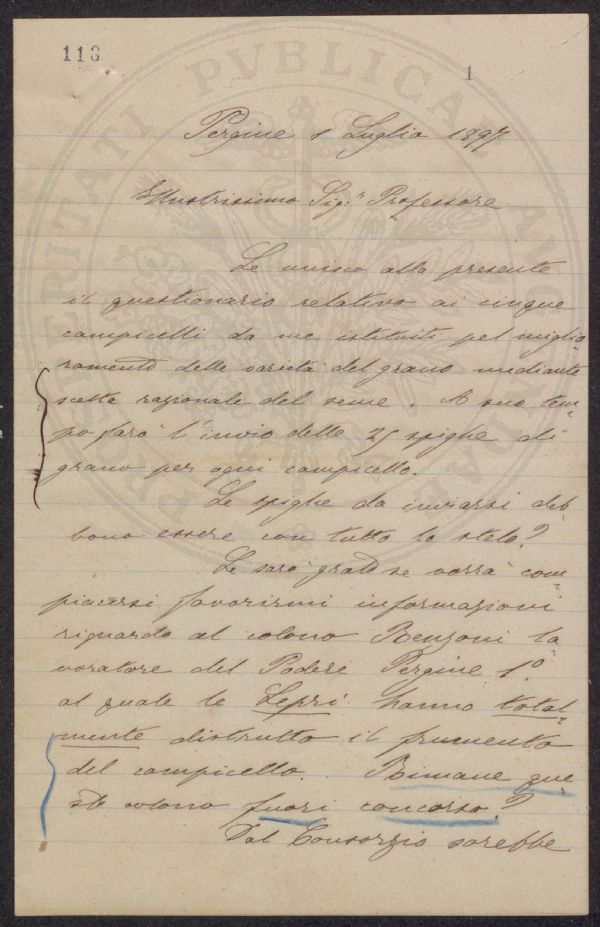 116
1
Pergine 1 Luglio 1897
Illustrissimo Sig.r Professore
Le unisco alla presente
il questionario relativo ai cinque
campicelli da me istituiti pel miglio
ramento delle varietà del grano mediante
scelta razionale del seme. A suo tem=
po farò l'invio delle 25 spighe di
grano per ogni campicello.
Le spighe da inviarsi deb
bono essere con tutto lo stelo?
Le sarò grato se vorrà com=
piacersi favorirmi informazioni
riguardo al colono Renzoni la
voratore del Podere Pergine 1°.
al quale le Lepri hanno total=
mente distrutto il frumento
del campicello. Rimane que=
sto colono fuori concorso?
Dal Consorzio sarebbe
PROSPERITATI PVBLICAE AVGENDAE